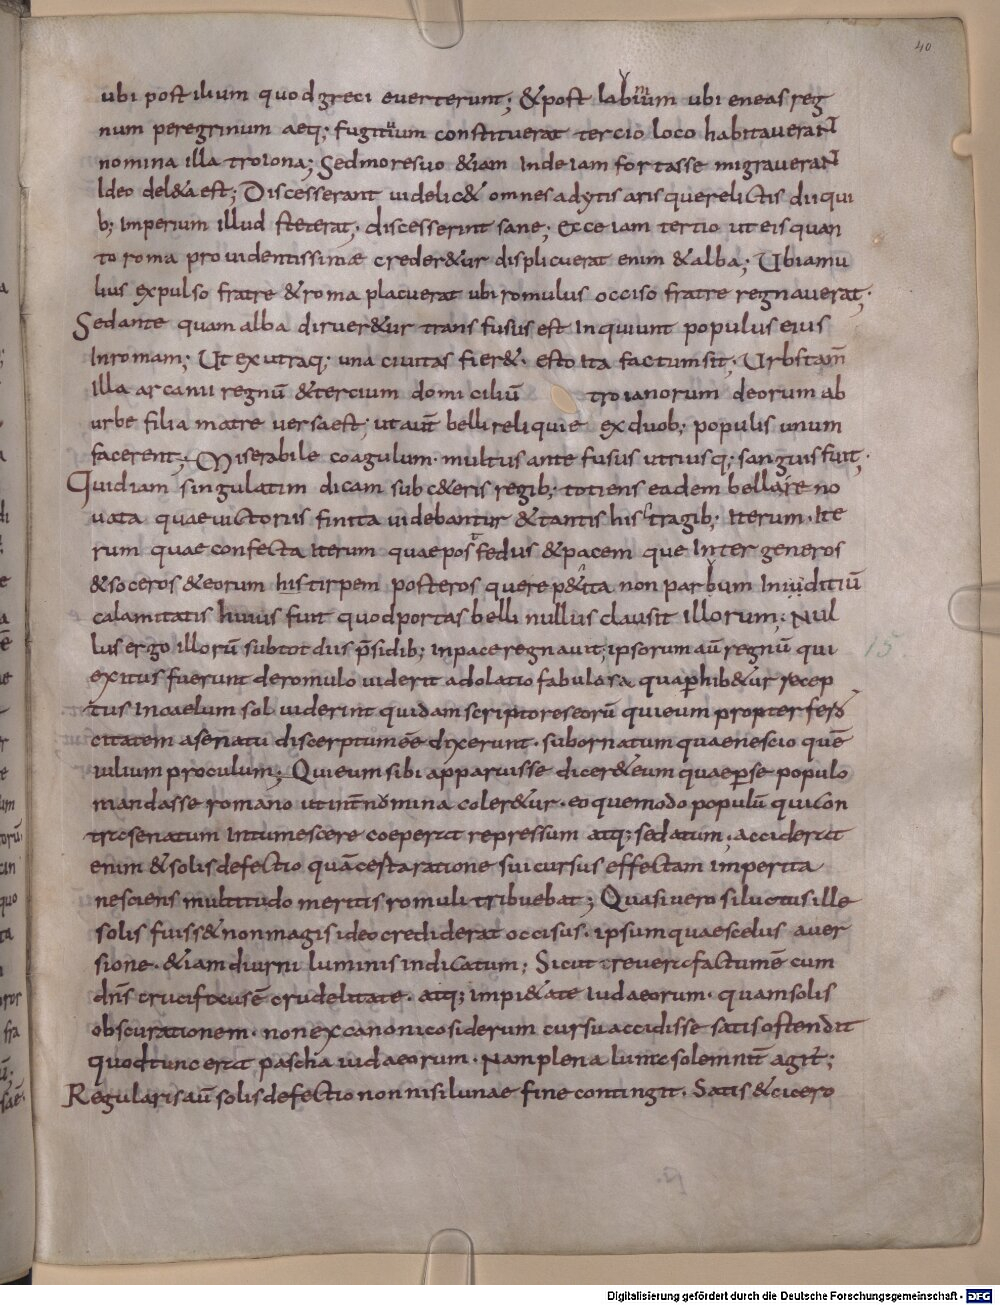 40
ubi post ilium quod greci euerterunt; &post labinium ubi eneas reg
num peregrinum atq; fugitiuum constituerat tercio loco habitauerant
nomina illa troiona; Sedmoresuo &iam inde iam fortasse migrauerant
Ideo del&a est; Discesserant uidelic& omnes adytis aris querelictis dii qui
b; imperium illud steterat; discesserint sane; Ecce iam tertio ut eis quan
to roma prouidentissimae creder&ur displicuerat enim &alba; Ubiamu
lius expulso fratre &roma placuerat ubi romulus occiso fratre regnauerat;
Sedante quam alba diruer&ur transfusus est Inquiunt populus eius
Inromam; Ut ex utraq; una ciuitas fier&. esto ita factumsit. Urbs tam̄
illa ascanii regnū &tercium domiciliū troianorum deorum ab
urbe filia matre uersaest; ut aut̄ belli reliquie ex duob; populis unum
facerent; Miserabile coagulum. multus ante fusus utriusq; sanguis fuit;
Quid iam singulatim dicam sub c&eris regib; totiens eadem bellare no
uata quae uictoriis finita uidebantur &tantis his tragib; Iterum. Ite
rum quae confecta iterum quae pos fedus &pacem que Inter generos
&soceros &eorum histirpem posteros quere p&ita non parbum Indītiū
calamitatis huius fuit quodportas belli nullus clausit illorum; Nul
lus ergo illorū subtot diis p̄sidib; inpace regnauit; ipsorum aū regnū qui
exitus fuerunt de romulo uiderit adolatio fabulasa qua p̄hib&ur recep
tus Incaelum sol uiderint quidam scriptores eorū quieum propter fero
citatem asenatu discerptumēe dixerunt. subornatum quaenescio quē
iulium proculum; Quieum sibi apparuisse dicer&eum quaep̄se populo
mandasse romano ut int̄ nomina coler&ur. eoquemodo populū qui con
tra senatum Intumescere coeperat repressum atq; sedatum. acciderat
enim &solis defectio quā certa ratione sui cursus effectam imperita
nesciens multitudo meritis romuli tribuebat; Quasi uero si luctus ille
solis fuiss& non magis ideo crediderat occisus. ipsumquaescelus auer
sione. &iam diurni luminis indicatum; Sicut reuera factumē cum
dn̄s crucifixusē crudelitate. atq; impi&ate Iudaeorum. quam solis
obscurationem. non ex canonico siderum cursu accidisse satis ostendit
quodtunc erat pascha iudaeorum. Nam plena lunae solemnit̄ agit̄;
Regularis aū solis defectio non nisi lunae fine contingit. Satis &cicero
15
Digitalisierung gefördert durch die Deutsche Forschungsgemeinschaft - DFG